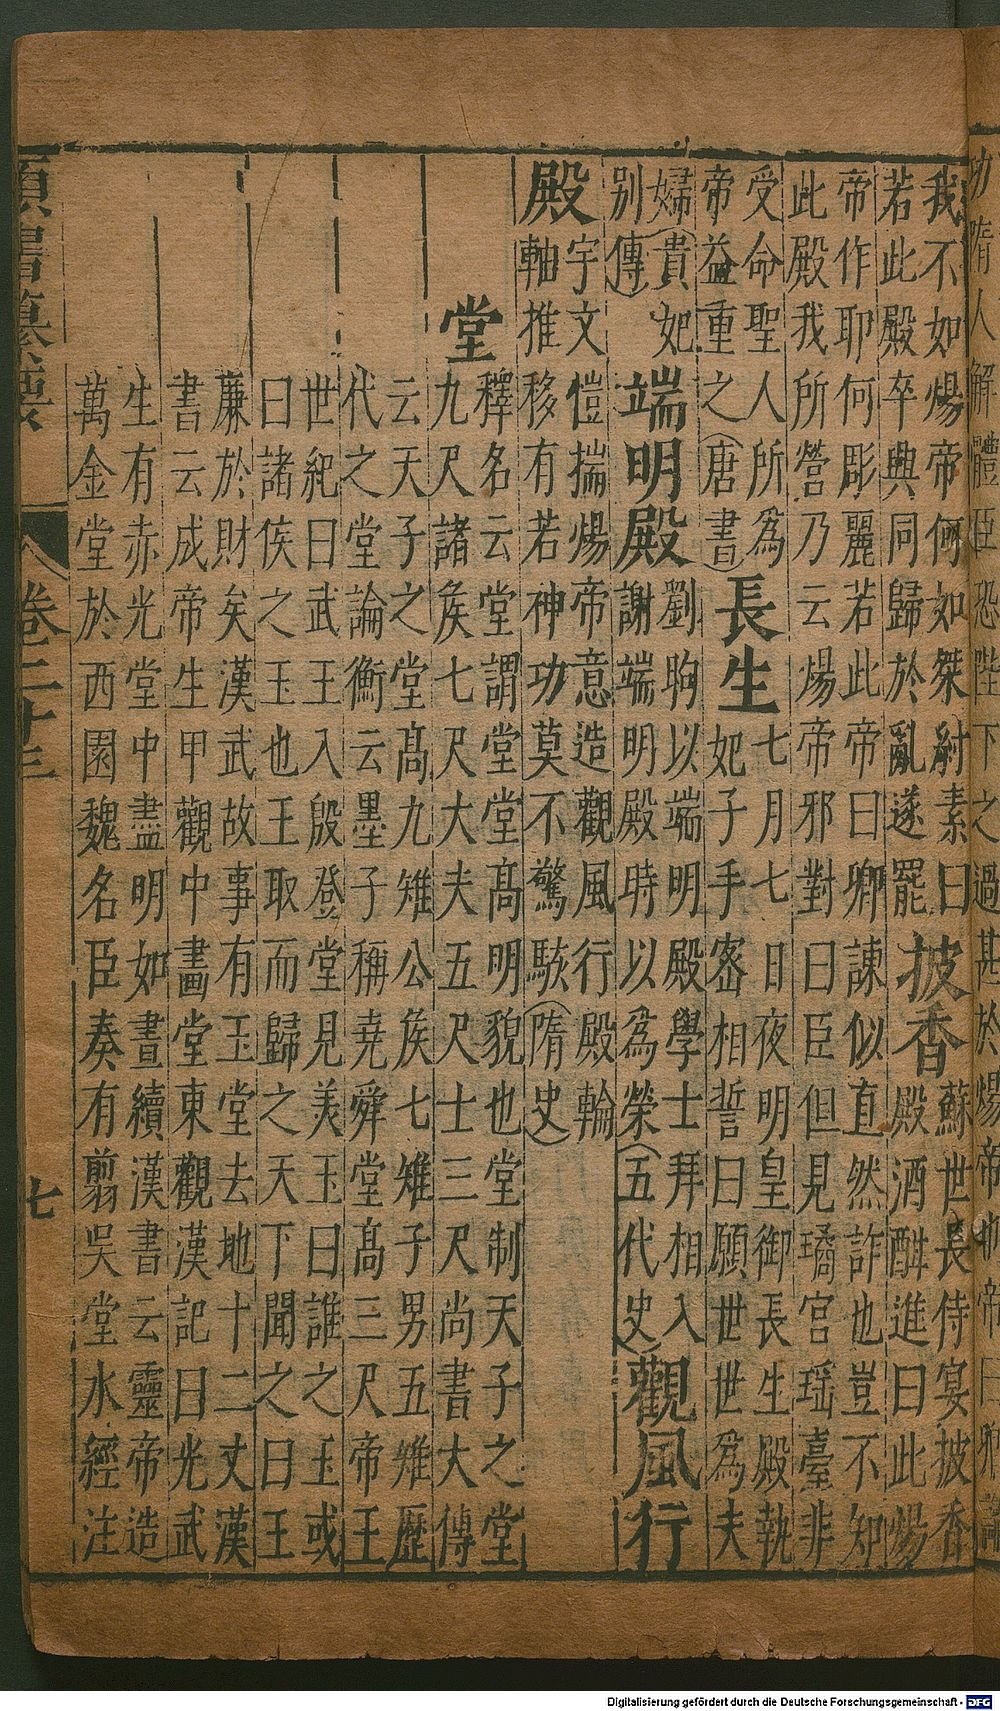 我不如煬帝何如桀紂素曰
若此殿卒興同歸於亂遂罷
披香
蘇世長侍宴披香
殿酒酣進曰此煬
帝作耶何彫麗若此帝曰卿諫似直然詐也豈不知
此殿我所營乃云煬帝邪對曰臣但見璚宮瑶臺非
受命聖人所爲
帝益重之（唐書）
長生
七月七日夜明皇御長生殿執
妃子手宻相誓曰願世世爲夫
婦（貴妃
别傳）
端明殿
劉昫以端明殿學士拜相入
謝端明殿時以爲榮（五代史）
觀風行
殿
宇文愷揣煬帝意造觀風行殿輪
軸推移有若神功莫不驚駭（隋史）
堂
釋名云堂謂堂堂髙明貌也堂制天子之堂
九尺諸矦七尺大夫五尺士三尺尚書大傳
云天子之堂髙九雉公矦七雉子男五雉歷
代之堂論衡云墨子稱堯舜堂髙三尺帝王
世紀曰武王入殷登堂見美玉曰誰之玉或
曰諸侯之玉也王取而歸之天下聞之曰王
亷於財矣漢武故事有玉堂去地十二丈漢
書云成帝生甲觀中畫堂東觀漢記曰光武
生有赤光堂中盡明如晝續漢書云靈帝造
萬金堂於西園魏名臣奏有翦吳堂水經注
類書纂要
卷二十三
七
Digitalisierung gefördert durch die Deutsche Forschungsgemeinschaft - DFG